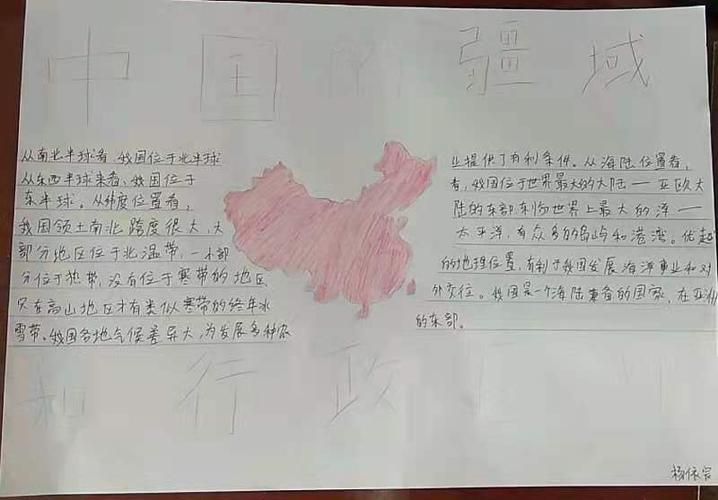 中国的疆域
从南北半球看 我国位于北半球
从东西半球来看，我国位于
东半球。从纬度位置看，
我国领土南北跨度很大，大
部分地区位于北温带，一小部
分位于热带，没有位于寒带的地区
只在高山地区才有类似寒带的终年冰
雪带。我国各地气候差异大，为发展多种农
业提供了有利条件。从海陆位置看，
看，我国位于世界最大的大陆——亚欧大
陆的东部，东临世界上最大的洋——
太平洋，有众多的岛屿和港湾。优越
的地理位置，有利于我国发展海洋事业和对
外交往。我国是一个海陆兼备的国家，在亚洲
的东部。
和行政